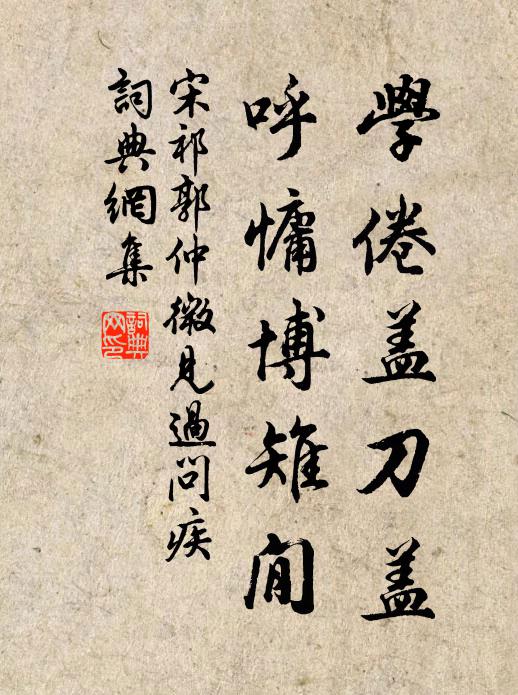 學倦盖刀盖
呼慵博雉閒
宋祁郭仲微見過問疾
詞典網集
詞典
网印